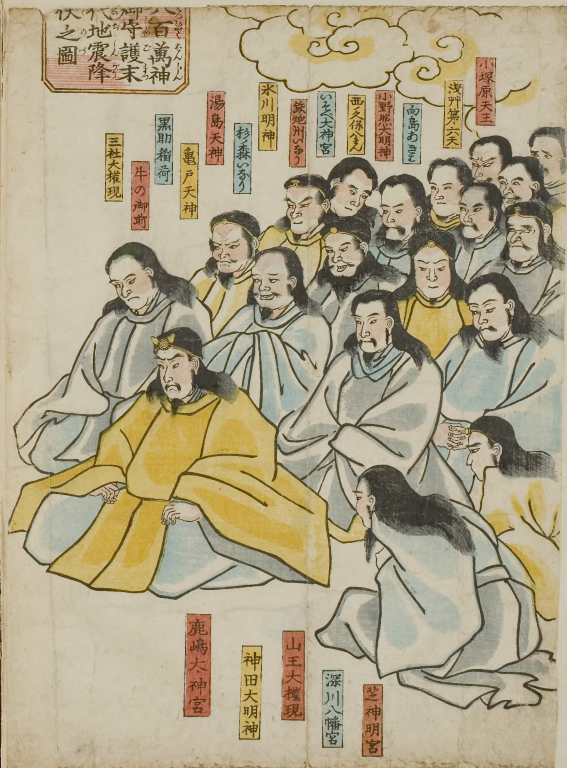 八百萬神
御守護末
代地震降
伏之圖
小塚原天王
浅艸第六天
向島あきは
小野照大明神
西久保八まん
いそべ大神宮
鉄炮州いなり
氷川明神
杉森いなり
湯島天神
亀戸天神
黒助稲荷
牛の御前
三社大權現
鹿嶋大神宮
神田大明神
山王大權現
深川八幡宮
芝神明宮